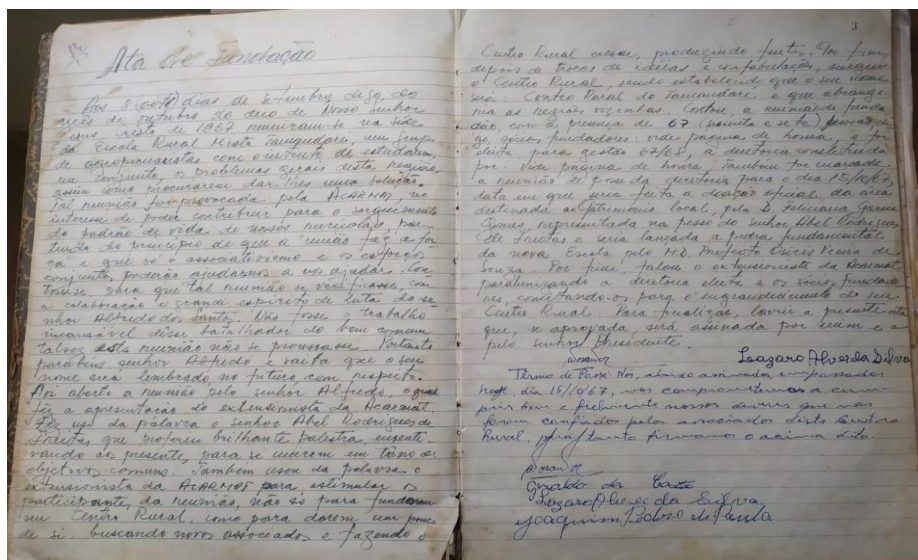 Ata de Fundação
Aos 8 (oito) dias de setembro digo, do
mês de outubro do ano de Nosso Senhor
Jesus Cristo de 1967 reuniram-se na sede
da Escola Rural Mista Tamandaré, um grupo
de agropecuaristas com o intuito de estudarem,
em conjunto, os problemas gerais desta região,
assim como procurarem dar-lhes uma solução.
Tal reunião foi provocada pela ACARMAT, no
interesse de poder contribuir para o soerguimento
do padrão de vida de nossos ruricolas, par-
tindo do princípio de que a "união faz a for
ça" e que só o associativismo e os esforços
conjuntos, poderão ajudarmos a nos ajudar. Con
tou-se, para que tal reunião se verificasse, com
a colaboração e grande espírito de luta do se
nhor Alfredo dos Santos. Não fosse o trabalho
incansável desse batalhador do bem comum
talvez esta reunião não se processasse. Portanto
parabéns senhor Alfredo e saiba que o seu
nome será lembrado no futuro com respeito.
Foi aberta a reunião pelo senhor Alfredo, o qual
fez a apresentação do extensionista da Acarmat.
Fez uso da palavra o senhor Abel Rodrigues de
Freitas que proferiu brilhante palestra, incenti
vando ao presente, para se unirem em torno de
objetivos comuns. Também usou da palavra o
extensionista da ACARMAT para estimular os
participantes da reunião, não só para fundarem
seu Centro Rural, como para darem um pouco
de si, buscando novos associados e fazendo o
3
Centro Rural crescer, produzindo frutos. Por fim,
depois de trocas de idéias e confabulações, surgiu
o Centro Rural, sendo estabelecido que o seu nome
será: Centro Rural do Tamandaré, e que abrangi
ria as regiões vizinhas. Contou, a reunião de funda
ção, com a presença de 67 (sessenta e sete) pessoas, di
go, sócios fundadores: vide página de honra. e foi
eleita para gestão 67/68, a diretoria constituida
por: vide página de honra. Também foi marcada
a reunião de posse da diretoria para o dia 15/10/67,
data em que seria feita a doação oficial da área
destinada ao patrimônio local, pela D. Feliciana Garcia
Gomes, representada na pessoa do senhor Abel Rodrigues
de Freitas e seria lançada a pedra fundamental
da nova Escola pelo M.D. Prefeito Euricles Vieira de
Souza. Por fim, falou o extensionista da Acarmat
parabenizando a diretoria eleita e os sócios fundado
res, concitando-os para o engrandecimento do seu
Centro Rural. Para finalizar, lavrei a presente ata
que, se aprovada, será assinada por mim e
pelo senhor Presidente.
Lazaro Alves da Silva
Termo de Posse Nós, abaixo assinados, empossados
hoje, dia 15/10/67, nos comprometemos a cum
prir bem e fielmente nossos deveres que nos
foram confiados pelos associados deste Centro
Rural, para tanto firmamos o acima dito.
Geraldo da Costa
Lazaro Alves da Silva
Joaquim Pedroso de Paula